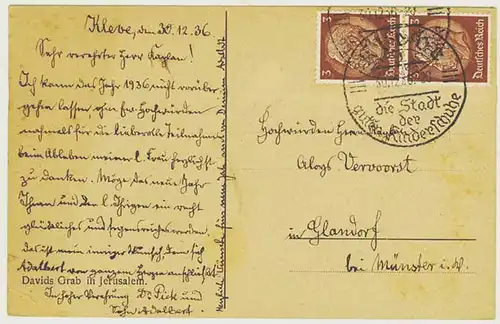 Kleve, den 30.12.36
Sehr verehrter Herr Kaplan!
Ich kann das Jahr 1936 nicht vorüber-
gehen lassen, um Ew. Hochwürden
nochmals für die liebevolle Teilnahme
beim Ableben meiner l. Frau herzlichst
zu danken. Möge das neue Jahr
Ihnen und den l. Ihrigen ein recht
glückliches und segensreiches werden,
das ist mein inniger Wunsch, dem sich
Adalbert von ganzem Herzen anschließt
Davids Grab in Jerusalem.
In hoher Verehrung Dr. Pick und
Sohn Adalbert.
3 Deutsches Reich
3 Deutsches Reich
30.12.36
die Stadt
der
guten Kinderschuhe
Hochwürden Herrn Kaplan
Aloys Vervoorst
in Glandorf
bei Münster i. W.